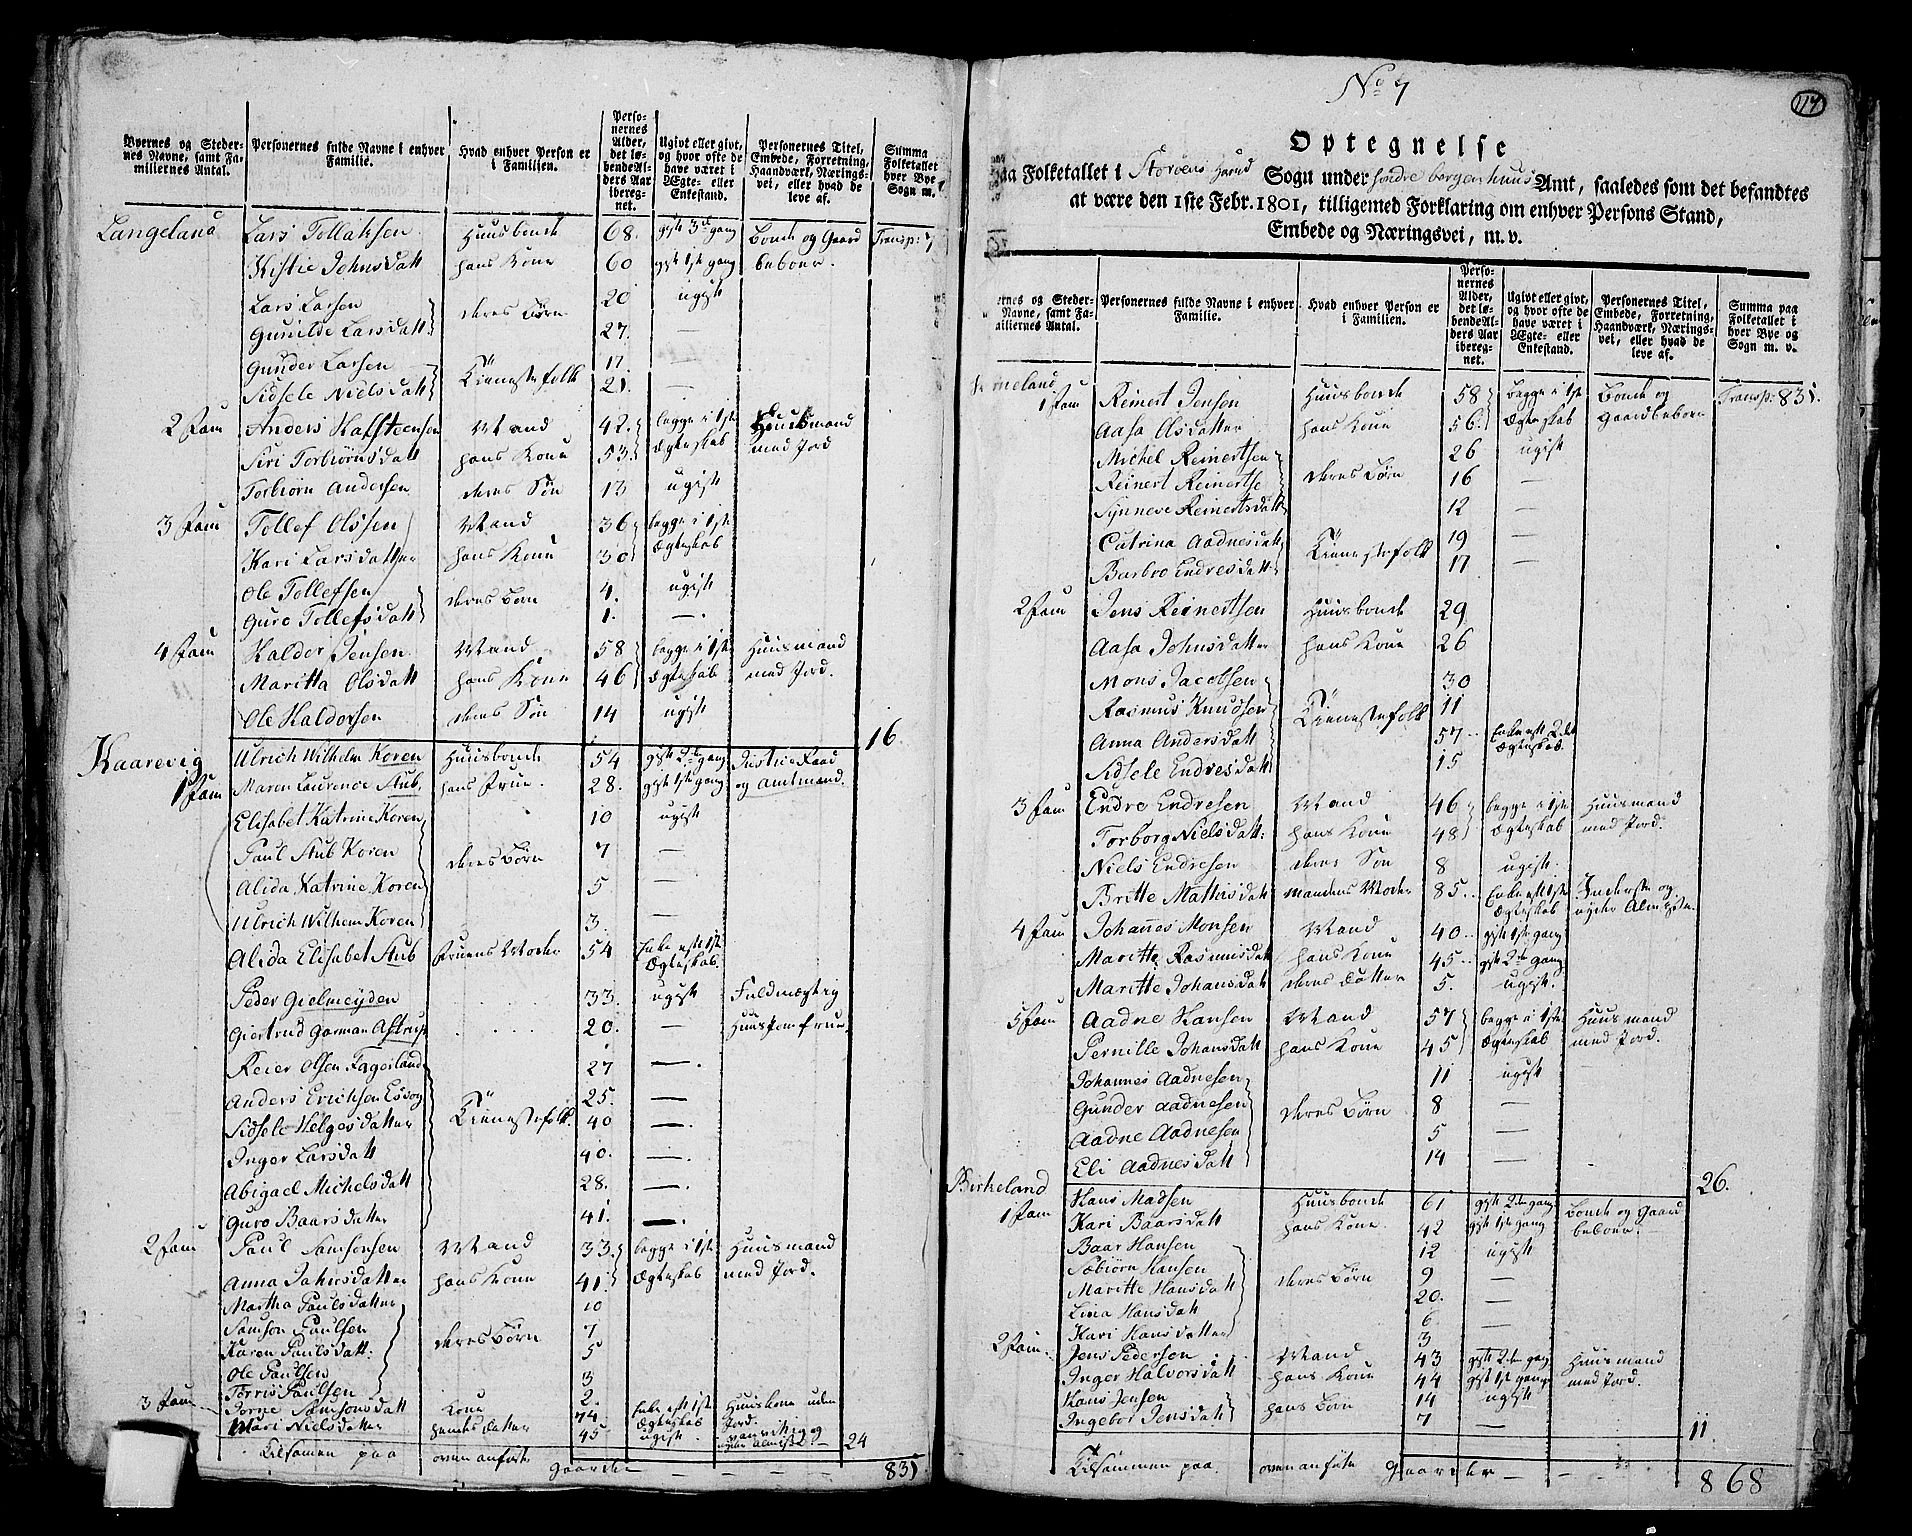 Byernes og Steder-
nes Navne, samt Fa-
miliernes Antal.
Personernes fulde Navne i enhver
Familie.
Hvad enhver Person er
i Familien.
Perso-
nernes
Alder,
det lø-
bende Al-
ders Aar
ibereg-
net.
Ugivt eller givt,
og hvor ofte de
have været i
Ægte- eller
Enkestand.
Personernes Titel,
Embede, Forretning,
Haandværk, Nærings-
vei, eller hvad de
leve af.
Summa
Folketallet
hver Bye
Sogn m.
Langeland Lars Tollaksen Huusbonde 68. gift 3de gang Bonde og Gaard Transp:
Kistie Johnsdatt hans Kone 60 gift 1ste gang beboer.
Lars Larsen 20 ugift
Gunilde Larsdatt deres Börn 27. —
Gunder Larsen 17
Sidsele Nielsdatt Tiennestefolk 21. —
2 Fam Anders Hafsteensen Mand 42. begge i 1ste Huusmand
Siri Torbiörnsdatt hans Kone 53. Ægteskab med Jord
Torbiörn Andersen deres Sön 13 ugift
3 Fam Tollef Olssen Mand 36 begge i 1ste
Kari Larsdatter hans Kone 30 Ægteskab
Ole Tollefsen 4. ugift
Guro Tollefsdatt deres Börn 1. —
4 Fam Haldor Jensen Mand 58 begge i 1ste Huusmand
Maritta Olsdatt hans Kone 46 Ægteskab med Jord.
Ole Haldorsen deres Sön 14 ugift
16.
Kaarevig Ulrich Wilhelm Koren Huusbonde 54 gift 2de gang Justice Raad
1 Fam Maren Laurence Stub, hans Frue. 28. gift 1ste gang og Amtmand.
Elisabet Katrine Koren 10 ugift
Paul Stub Koren deres Börn 7 —
Alida Katrine Koren 5 —
Ulrich Wilhem Koren 3. —
Alida Elisabet Stub Fruens Moder 54 Enke eft 1ste
Ægteskab.
Peder Gielmeyden 33. ugift Fuldmægtig
Giertrud Garman Astrup 20. — Huusjomfrue
Reier Olsen Fagerland 27 —
Anders Erichsen Esvog 25. —
Sidsele Helgesdatter Tiennestefolk. 40 —
Inger Larsdatt 40. —
Abigael Michelsdatt 28. —
Guro Baarsdatter 41. —
2 Fam Paul Samsonsen Mand 33. begge i 1ste Huusmand
Anna Jahnsdatter hans Kone 41. Ægteskab med Jord.
Martha Paulsdatter 10
Samson Paulsen 7
Karen Paulsdatt. deres Börn 5
Ole Paulsen 3
Torris Paulsen 2.
3 Fam Jorne Samsonsdatt Kone 74. Enke eft 1ste Huuskone uden
Mari Nielsdatter hendes Datter 45 Ægteskab Jord.
ugift. vanvittig og
24
Tilsammen paa ovenanførte Gaarder — — — 831

No 7
117
Optegnelse
paa Folketallet i Storöens Sogn under Søndre bergenhuus Amt, saaledes som det befandtes
at være den 1ste Febr. 1801, tilligemed Forklaring om enhver Persons Stand,
Embede og Næringsvei, m.v.
ernes og Steder-
Navne, samt Fa-
miliernes Antal.
Personernes fulde Navne i enhver
Familie.
Hvad enhver Person er
i Familien.
Perso-
nernes
Alder,
det lø-
bende Al-
ders Aar
ibereg-
net.
Ugivt eller givt,
og hvor ofte de
have været i
Ægte- eller
Enkestand.
Personernes Titel,
Embede, Forretning,
Haandværk, Nærings-
vei, eller hvad de
leve af.
Summa paa
Folketallet i
hver Bye og
Sogn m. v.
1 Fam Reinert Jensen Huusbonde 58 begge i 1ste Bonde og Transp: 831.
Aasa Olsdatter hans Kone 56. Ægteskab Gaardbeboer
Michel Reinertsen 26 ugift
Reinert Reinertse deres Börn 16 —
Synneve Reinertsdatt 12 —
Catrina Aadnesdatt 19 —
Barbro Endresdatt Tiennestefolk 17 —
2 Fam Jens Reinertsen Huusbonde 29
Aasa Johnsdatter hans Kone 26
Mons Jacobsen 30
Rasmus Knudsen Tiennestefolk 11
Anna Andersdatt 57 Enke eft 2det
Ægteskab.
Sidsele Endresdatt 15
3 Fam Endre Endresen Mand 46 begge i 1ste Huusmand
Torborg Nielsdatt: hans Kone 48 Ægteskab med Jord.
Niels Endresen deres Sön 8 ugift.
Britte Mathisdatt Mandens Moder 85. Enke eft 1ste Inderste og
Ægteskab nyder Almisse.
4 Fam Johannes Monsen Mand 40 gift 1ste gang
Maritte Rasmusdatt hans Kone 45 gift 2de gang
Maritte Johansdatt deres Datter 5. ugift.
5 Fam Aadne Hansen Mand 57 begge i 1ste Huusmand
Pernille Johansdatt hans Kone 45 Ægteskab med Jord.
Johannes Aadnesen 11 ugift
Gunder Aadnesen deres Börn 8 —
Aadne Aadnesen 5 —
Eli Aadnesdatt 14 —
26.
Birkeland Hans Madsen Huusbonde 61 gift 2de gang Bonde og Gaard
1 Fam Kari Baarsdatt hans Kone. 42 gift 1ste gang beboer.
Baar Hansen 12 ugift
Sæbiörn Hansen 9 —
Maritte Hansdatt deres Börn 20. —
Lina Hansdatt 6 —
Kari Hansdatter 3
2 Fam. Jens Pedersen Mand 43 gift 2de gang Huusmand
Inger Halvorsdatt hans Kone 44 gift 1ste gang med Jord.
Hans Jensen 14 ugift
Ingebor Jensdatt hans Börn 7 —
11.
Tilsammen paa ovenanførte Gaarder — — — 868